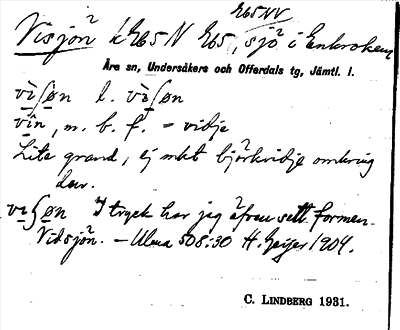 265 NV
Visjön k 265 N 265, sjö i
Åre sn, Undersåkers och Offerdals tg, Jämtl. l.
vìʃøn l. vìʃøn
vîn, m. b. f. = vidje
Lite grand, ej mkt björkvidje omkring
den.
vɩʃøn I tryck har jag även sett formen
Vidsjön. – Ulma 508:30 H. Geijer 1909.
C. LINDBERG 1931.